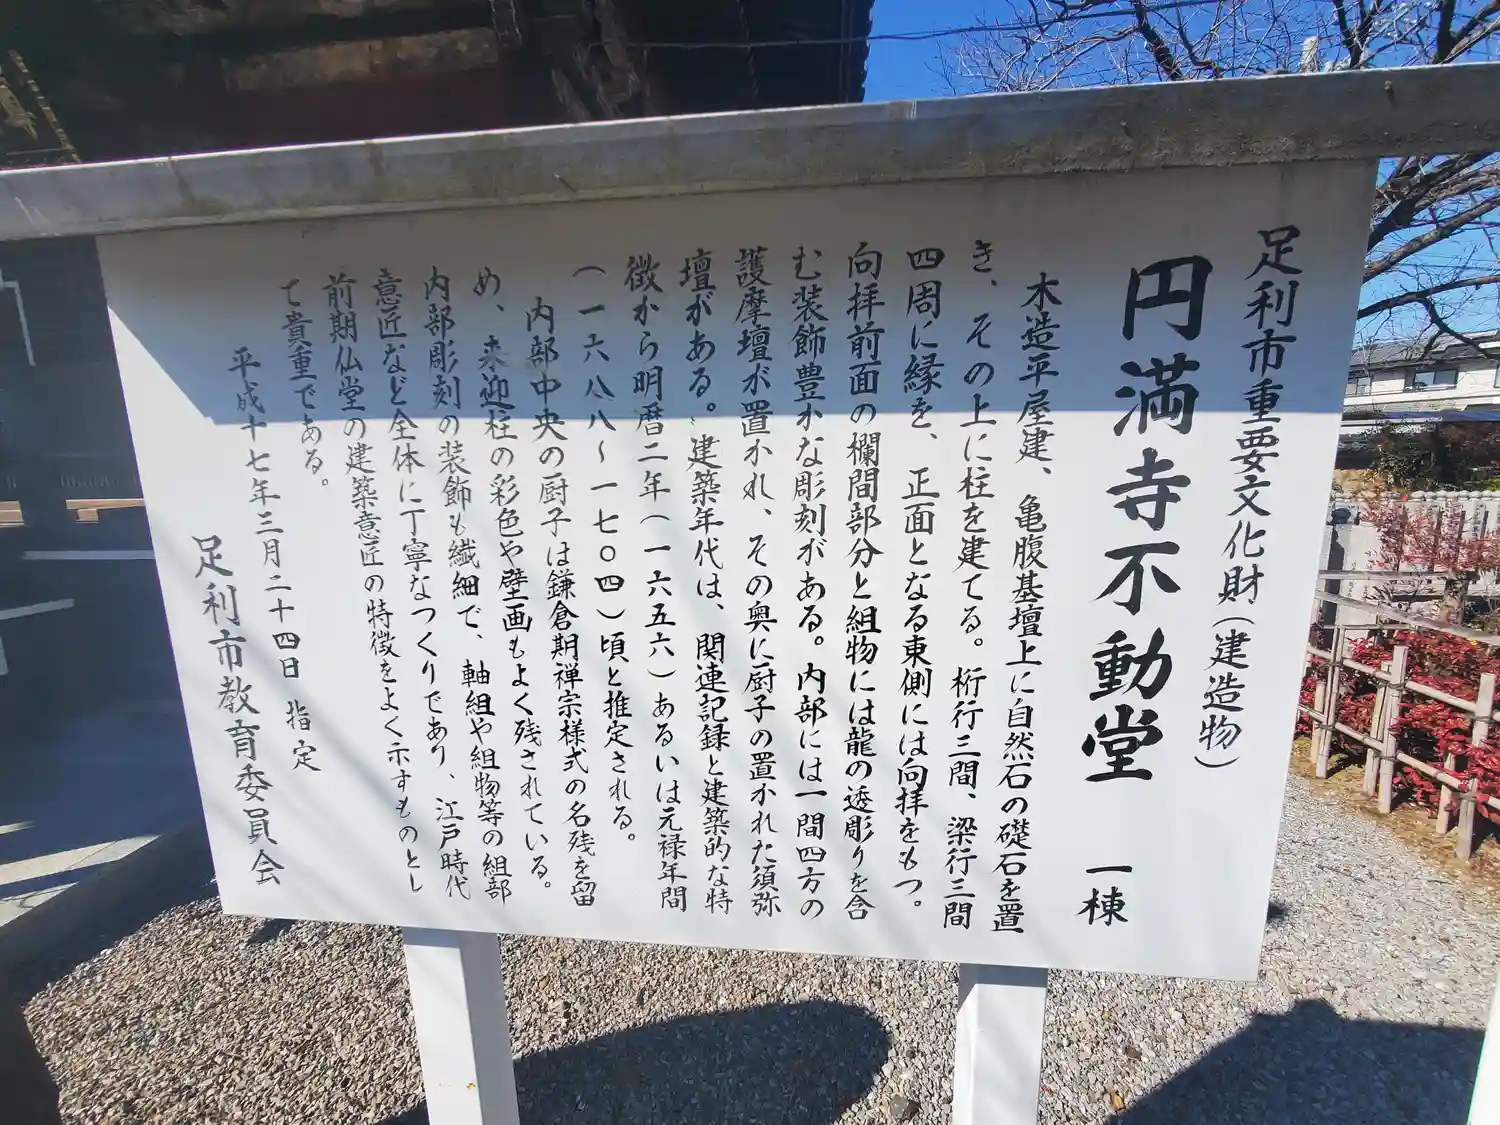 足利市重要文化財(建造物)
円満寺不動堂 一棟
木造平屋建、亀腹基壇上に自然石の礎石を置
き、その上に柱を建てる。桁行三間、梁行三間
四周に縁を、正面となる東側には向拝をもつ。
向拝前面の欄間部分と組物には龍の透彫りを含
む装飾豊かな彫刻がある。内部には一間四方の
護摩壇が置かれ、その奥に厨子の置かれた須弥
壇がある。建築年代は、関連記録と建築的な特
徴から明暦二年(一六五六)あるいは元禄年間
(一六八八〜一七〇四)頃と推定される。
内部中央の厨子は鎌倉期禅宗様式の名残を留
め、来迎柱の彩色や壁画もよく残されている。
内部彫刻の装飾も繊細で、軸組や組物等の組部
意匠など全体に丁寧なつくりであり、江戸時代
前期仏堂の建築意匠の特徴をよく示すものとし
て貴重である。
平成十七年三月二十四日 指定
足利市教育委員会